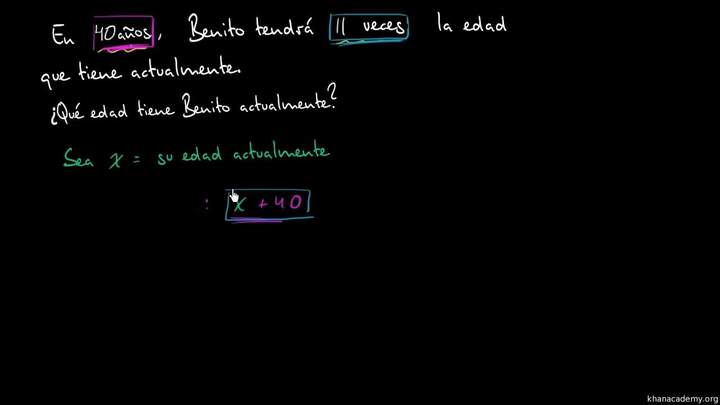 En 40 años, Benito tendrá 11 veces la edad
que tiene actualmente.
¿Qué edad tiene Benito actualmente?
Sea x = su edad actualmente
: x + 40
khanacademy.org